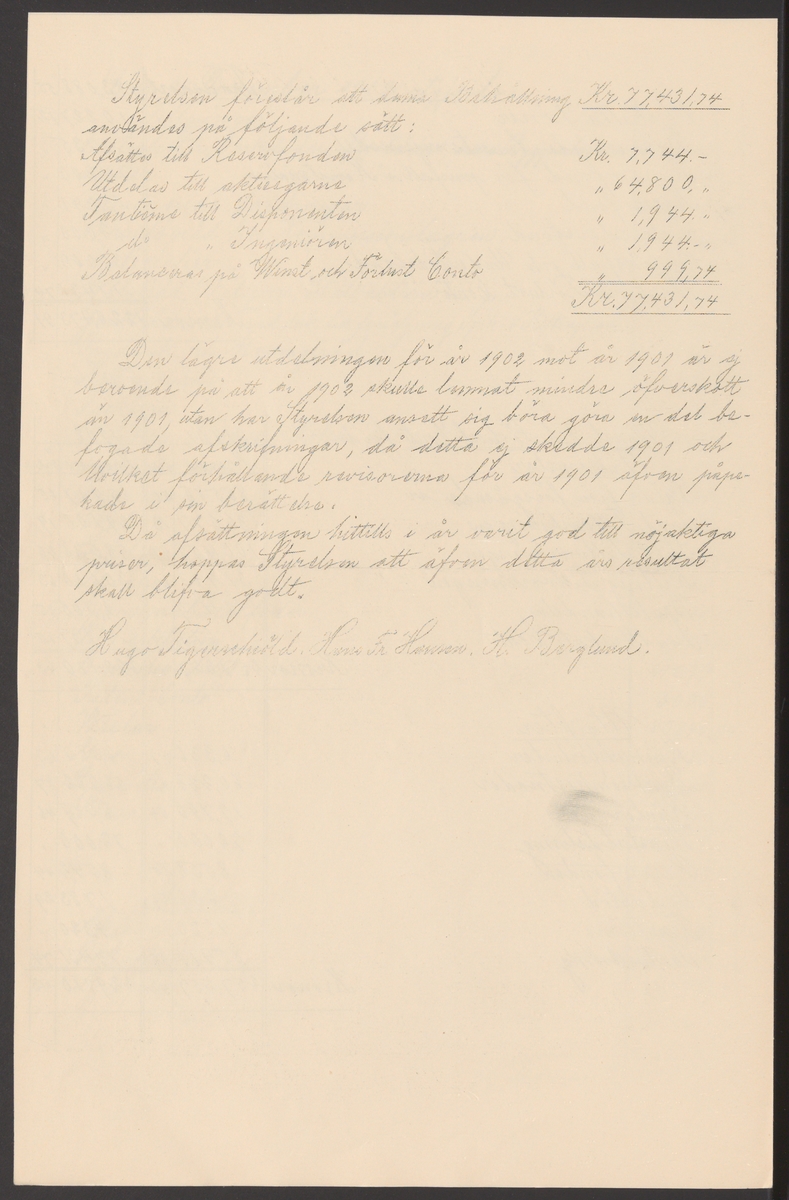 Styrelsen föreslår att denna Behållning Kr. 77,431,74
användes på följande sätt:
Afsättes till Reservfonden Kr. 7,744.-
Utdelas till aktieegarne " 64,800, "
Tantième till Disponenten " 1,944.- "
do " Ingeniören " 1,944.- "
Balanseras på Winst och Förlust Conto " 999,74
Kr. 77,431,74
Den lägre utdelningen för år 1902 mot år 1901 är ej
beroende på att år 1902 skulle lemnat mindre öfverskott
än 1901, utan har Styrelsen ansett sig böra göra en del be-
fogade afskrifningar, då detta ej skedde 1901 och
hvilket förhållande revisorerna för år 1901 äfven påpe-
kade i sin berättelse.
Då afsättningen hittills i år varit god till nöjaktiga
priser, hoppas Styrelsen att äfven detta års resultat
skall blifva godt.
Hugo Tigerschiöld. Hans Fr Hansen. K. Berglund.